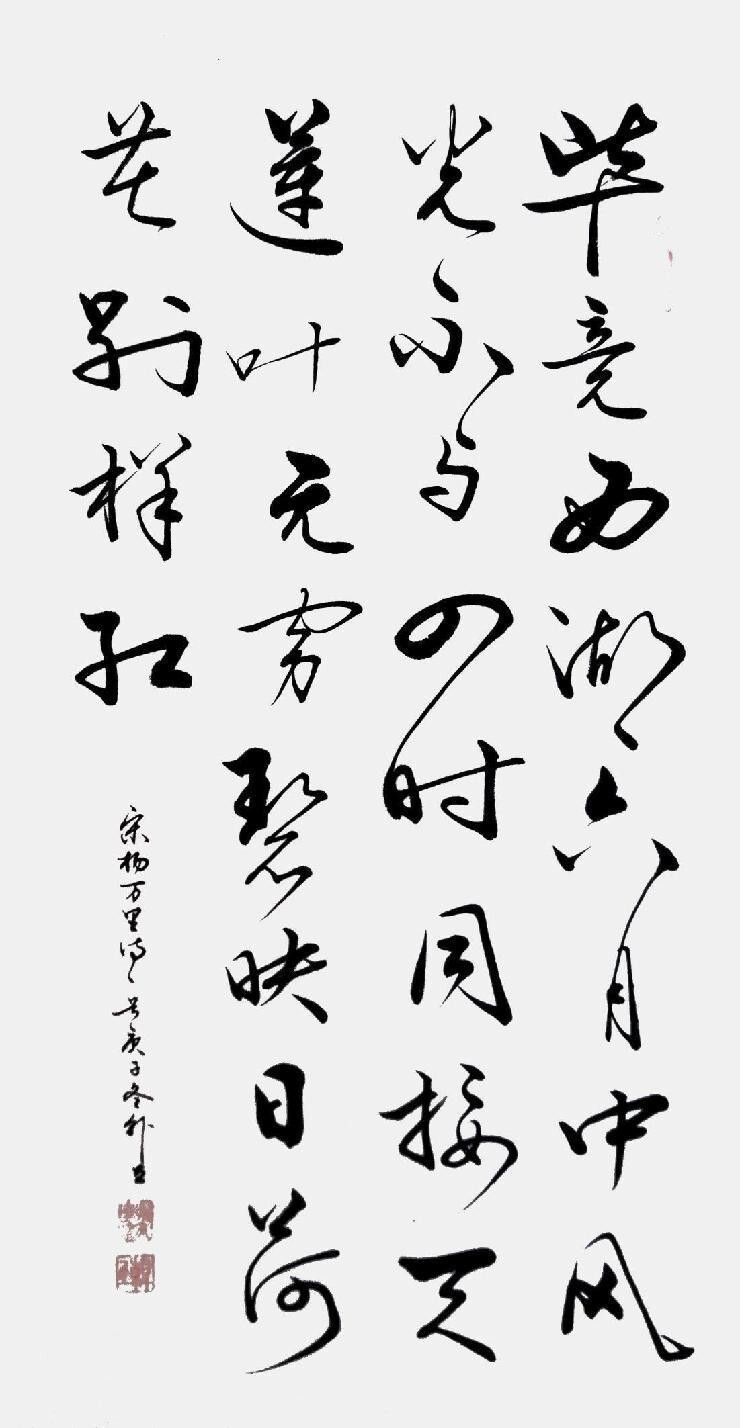 毕竟西湖六月中风
光不与四时同接天
莲叶无穷碧映日荷
花别样红
宋杨万里诗一首庚子冬